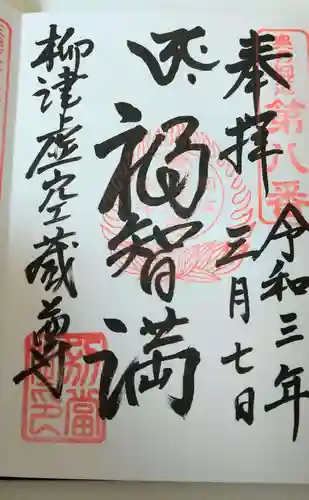 奉拝
令和三年
三月七日
第八番
福智満
柳津虚空蔵尊
別當